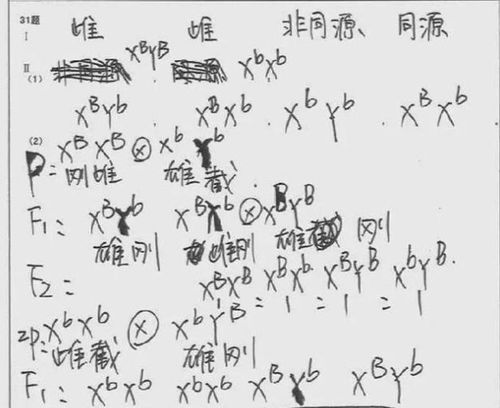 31题
I 雌 雌 非同源、同源
II
(1) X^B Y^B X^b X^b
X^B Y^b . X^B X^b . X^b Y^b . X^B X^b
(2) X^B X^B ⊗ X^b Y^b
P: 刚雌 雄截
F₁: X^B Y^b X^B X^b ⊗ X^B Y^B
雄刚 雌刚 雄 刚
F₂: X^B X^B X^B X^b X^B Y^B X^b Y^B.
= 1 = 1 = 1
2P: X^b X^b ⊗ X^b Y^B
雌截 雄刚
F₁: X^b X^b X^b X^b X^B Y^b X^B Y^b